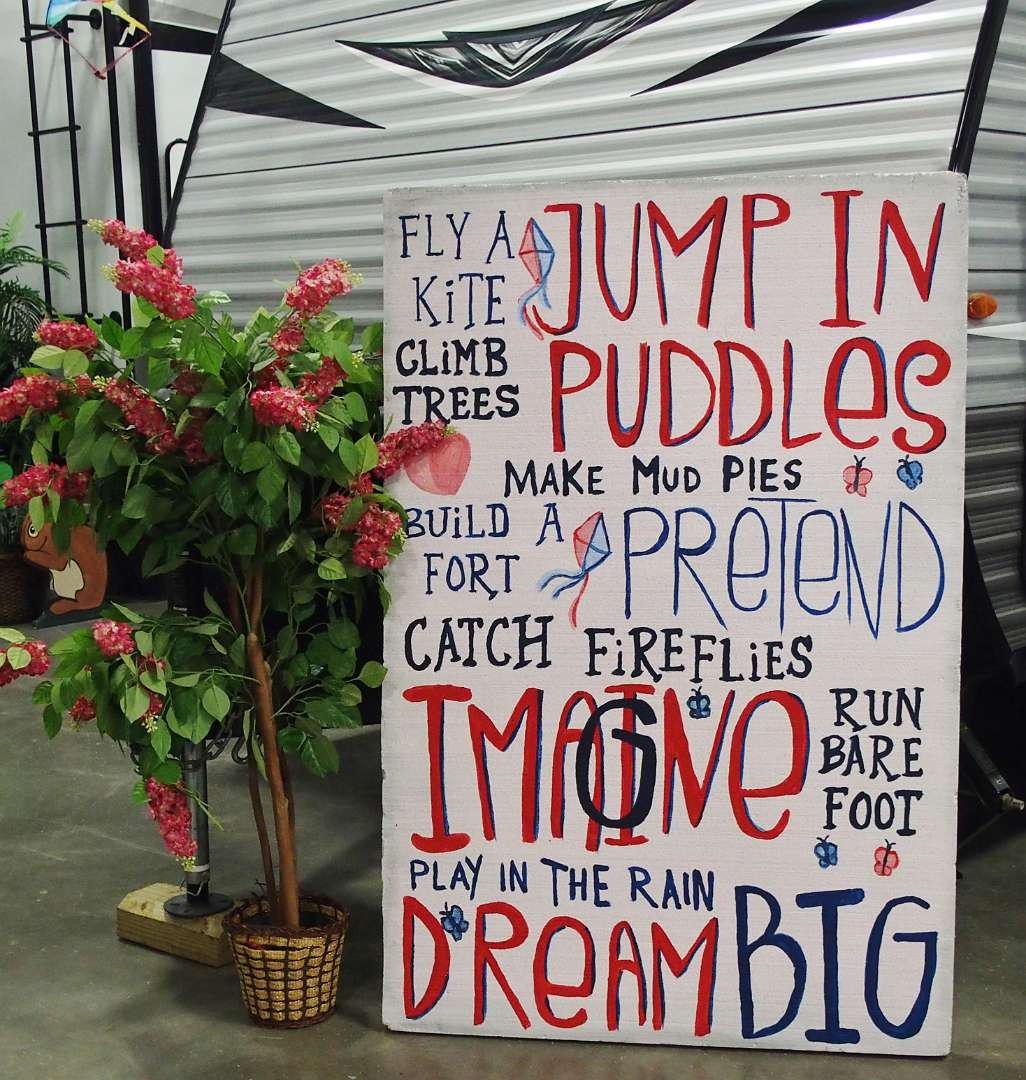 FLY A
KiTE
JUMP IN
PUDDLeS
CLiMB
TREES
MAKE MUD PIES
BUiLD A
FORT
PReTeND
CATCH FiREFLiES
IMAGINe
RUN
BARE
FOOT
PLAY IN THE RAIN
DReAM BIG